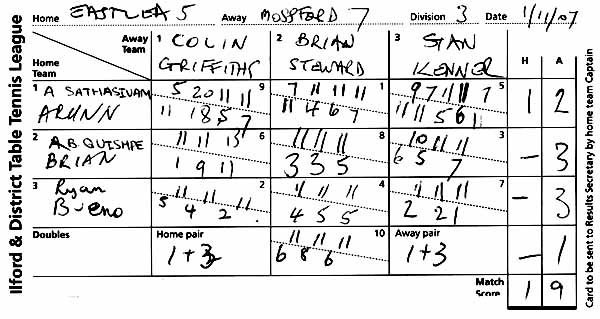 Ilford & District Table Tennis League
Home EASTLEA 5 Away MOSSFORD 7 Division 3 Date 1/11/07
Away Team 1 COLIN GRIFFITHS 2 BRIAN STEWARD 3 STAN KENNER H A
Home Team
1 A SATHASIVAM 5 20 11 11 9 7 11 11 11 1 9 7 11 11 7 5 1 2
ARUNN 11 18 5 7 11 4 6 7 11 11 5 6 11
2 A.B. QUISHPE 11 11 13 6 11 11 11 8 10 11 11 3 - 3
BRIAN 1 9 11 3 3 5 6 5 7
3 Ryan 11 11 11 2 11 11 11 4 11 11 11 7 - 3
Bueno 5 4 2 4 5 5 2 2 1
Doubles Home pair 11 11 11 10 Away pair - 1
1+3 6 8 6 1+3
Match Score 1 9
Card to be sent to Results Secretary by home team Captain